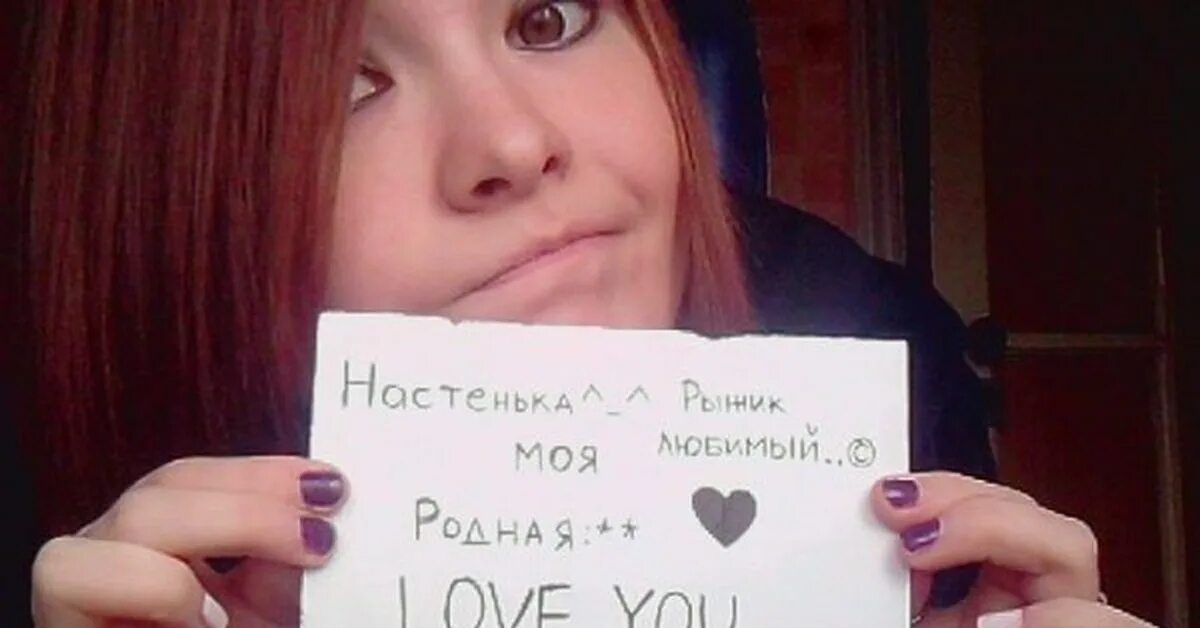 Настенька^_^ Рыжик
моя любимый..©
Родная:**
LOVE YOU